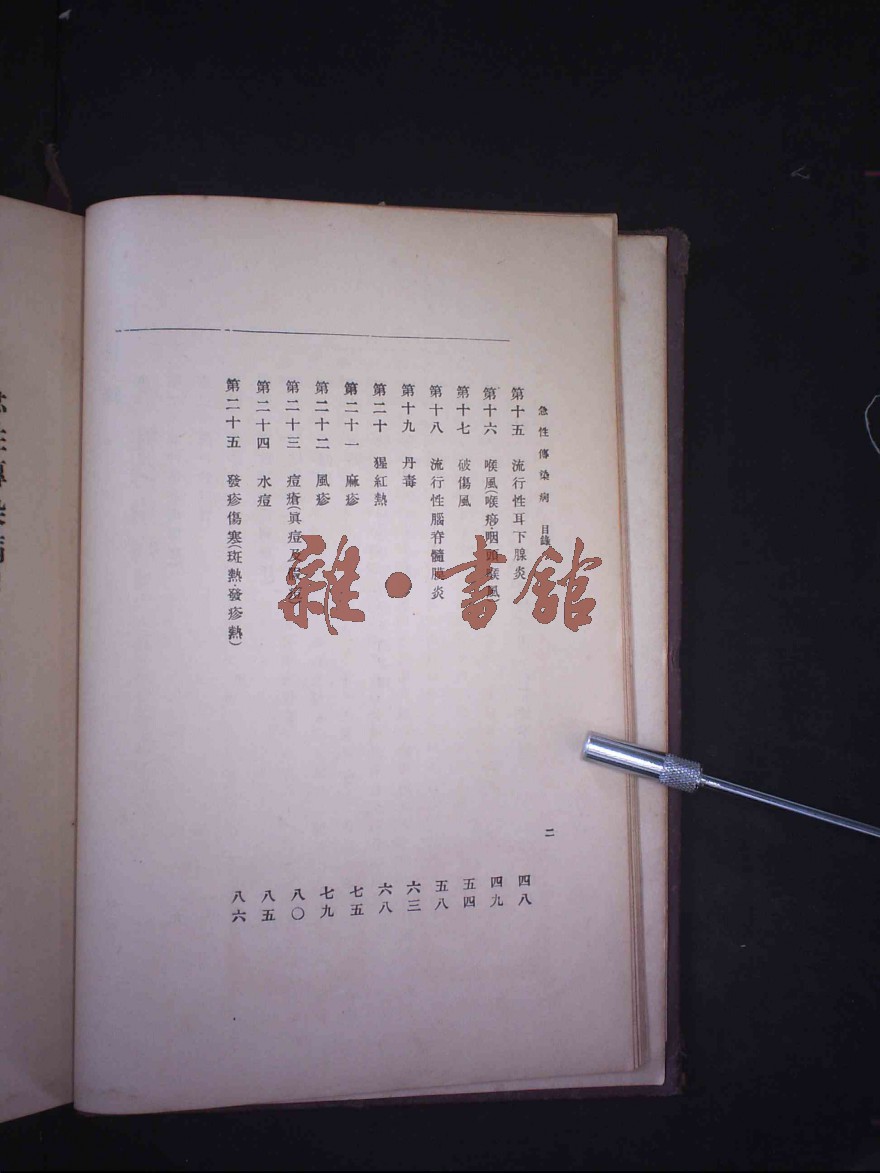 急性傳染病 目錄 二
第十五 流行性耳下腺炎 四八
第十六 喉風(喉痧·咽頭喉風) 四九
第十七 破傷風 五四
第十八 流行性腦脊髓膜炎 五八
第十九 丹毒 六三
第二十 猩紅熱 六八
第二十一 麻疹 七五
第二十二 風疹 七九
第二十三 痘瘡(眞痘及 八〇
第二十四 水痘 八五
第二十五 發疹傷寒(斑熱·發疹熱) 八六
雜·書館